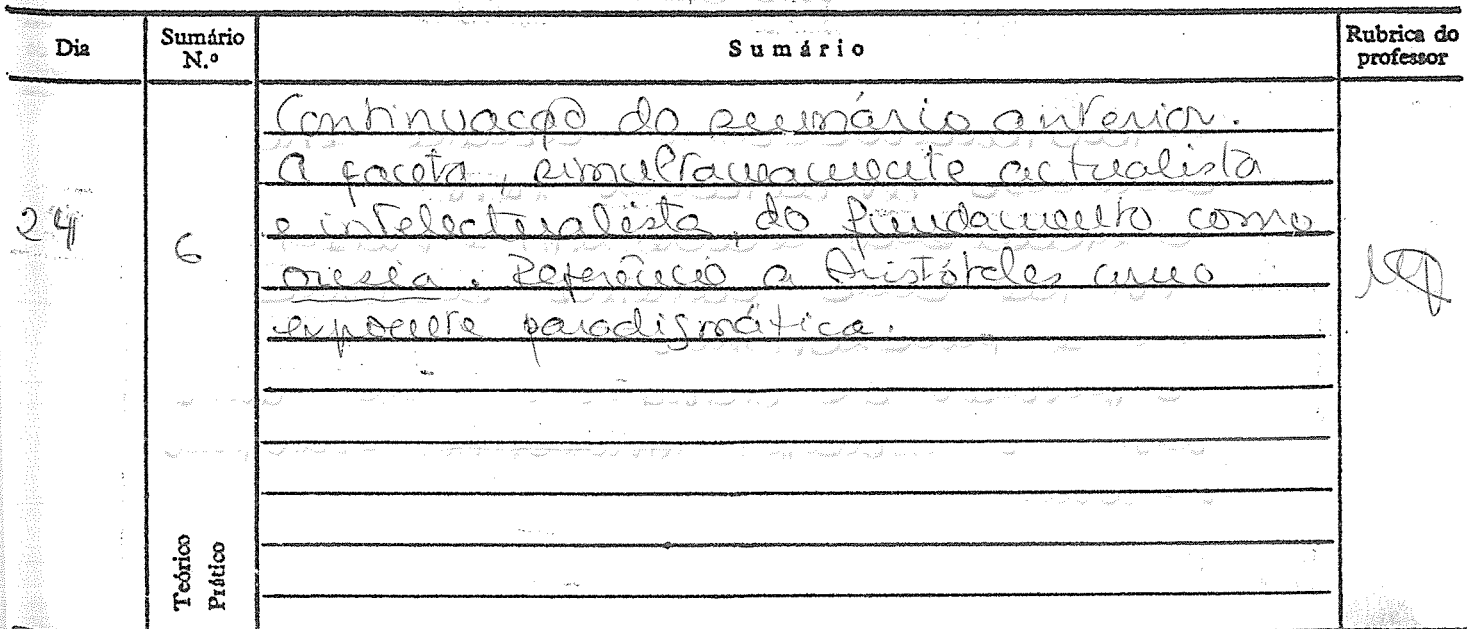 Dia
Sumário N.º
Sumário
Rubrica do professor
24
6
Continuação do sumário anterior.
A faceta, simultaneamente actualista
e intelectualista, do fundamento como
ousia. Referência a Aristóteles como
expoente paradigmático.
Teórico
Prático